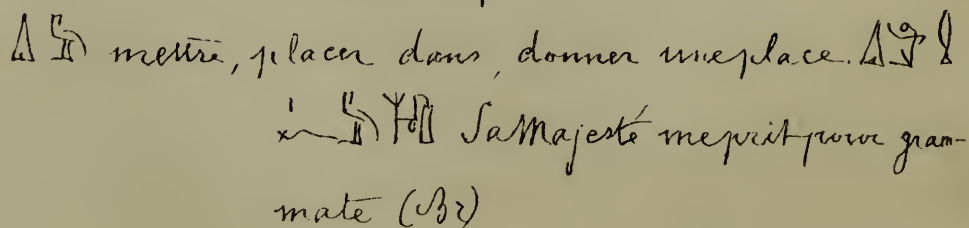 mettre, placer dans, donner une place.
Sa Majesté me prit pour gram-
mate (Br)